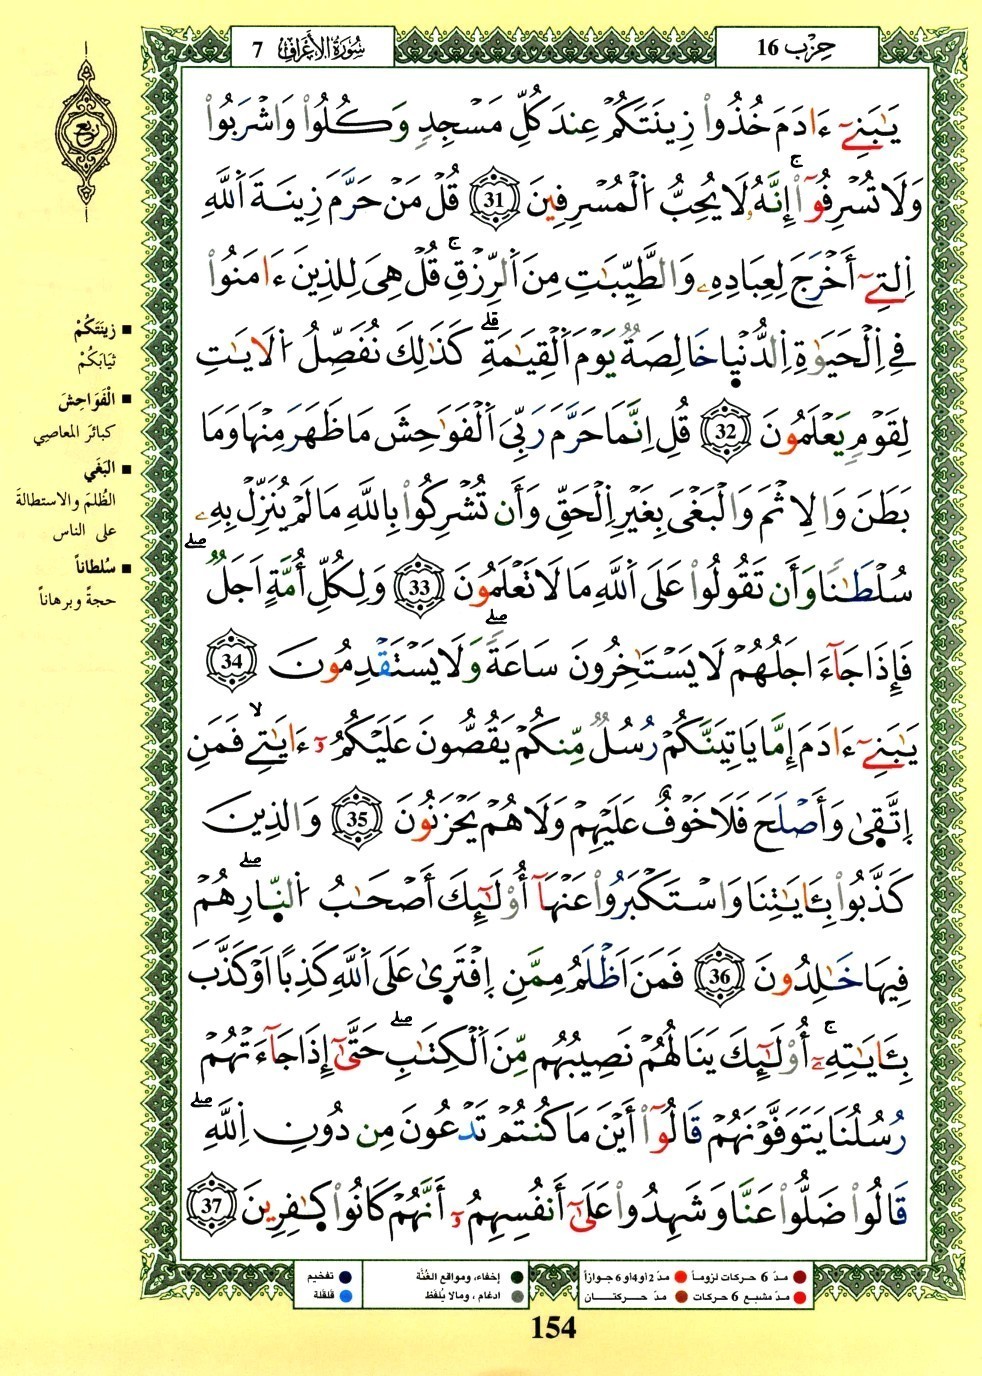 حزب 16
سورة الأعراف 7
ربع
يَٰبَنِےٓ ءَادَمَ خُذُواْ زِينَتَكُمْ عِندَ كُلِّ مَسْجِدٖ وَكُلُواْ وَاشْرَبُواْ
وَلَا تُسْرِفُوٓاْۚ إِنَّهُۥ لَا يُحِبُّ اُ۬لْمُسْرِفِينَ 31 قُلْ مَنْ حَرَّمَ زِينَةَ اَ۬للَّهِ
اِ۬لتِےٓ أَخْرَجَ لِعِبَادِهِۦ وَالطَّيِّبَٰتِ مِنَ اَ۬لرِّزْقِۚ قُلْ هِيَ لِلذِينَ ءَامَنُواْ
فِے اِ۬لْحَيَوٰةِ اِ۬لدُّنْي۪ا خَالِصَةٞ يَوْمَ اَ۬لْقِيَٰمَةِۗ كَذَٰلِكَ نُفَصِّلُ اُ۬لَايَٰتِ
لِقَوْمٖ يَعْلَمُونَ 32 قُلِ اِنَّمَا حَرَّمَ رَبِّيَ اَ۬لْفَوَٰحِشَ مَا ظَهَرَ مِنْهَا وَمَا
بَطَنَ وَالِاثْمَ وَالْبَغْيَ بِغَيْرِ اِ۬لْحَقِّ وَأَن تُشْرِكُواْ بِاللَّهِ مَا لَمْ يُنَزِّلْ بِهِۦ
سُلْطَٰناٗ وَأَن تَقُولُواْ عَلَى اَ۬للَّهِ مَا لَا تَعْلَمُونَ 33 وَلِكُلِّ أُمَّةٍ اَجَلٞۖ
فَإِذَا جَآءَ اجَلُهُمْ لَا يَسْتَٰخِرُونَ سَاعَةٗۖ وَلَا يَسْتَقْدِمُونَ 34
يَٰبَنِےٓ ءَادَمَ إِمَّا يَاتِيَنَّكُمْ رُسُلٞ مِّنكُمْ يَقُصُّونَ عَلَيْكُمُۥٓ ءَايَٰتِے فَمَنِ
اِ۪تَّق۪يٰ وَأَصْلَحَ فَلَا خَوْفٌ عَلَيْهِمْ وَلَا هُمْ يَحْزَنُونَ 35 وَالذِينَ
كَذَّبُواْ بِـَٔايَٰتِنَا وَاسْتَكْبَرُواْ عَنْهَآ أُوْلَٰٓئِكَ أَصْحَٰبُ اُ۬لنّ۪ارِۖ هُمْ
فِيهَا خَٰلِدُونَ 36 فَمَنَ اَظْلَمُ مِمَّنِ اِ۪فْتَر۪يٰ عَلَى اَ۬للَّهِ كَذِباً اَوْ كَذَّبَ
بِـَٔايَٰتِهِۦٓۚ أُوْلَٰٓئِكَ يَنَالُهُمْ نَصِيبُهُم مِّنَ اَ۬لْكِتَٰبِۖ حَتَّىٰٓ إِذَا جَآءَتْهُمْ
رُسُلُنَا يَتَوَفَّوْنَهُمْ قَالُوٓاْ أَيْنَ مَا كُنتُمْ تَدْعُونَ مِن دُونِ اِ۬للَّهِۖ
قَالُواْ ضَلُّواْ عَنَّا وَشَهِدُواْ عَلَىٰٓ أَنفُسِهِمُۥٓ أَنَّهُمْ كَانُواْ كٰ۪فِرِينَ 37
زِينَتَكُمْ
ثيَابَكُمْ
الْفَوَاحِشَ
كبائرَ المعاصِي
البَغْي
الظُلمَ والاستطالةَ
على الناس
سُلطاناً
حجةً وبرهاناً
مدّ 6 حركات لزوماً
مدّ 2 أو 4 أو 6 جوازاً
مدّ مشبع 6 حركات
مدّ حركتــان
إخفاء، ومواقع الغُنَّة
ادغام، ومالا يُلفَظ
تفخيم
قلقلة
154